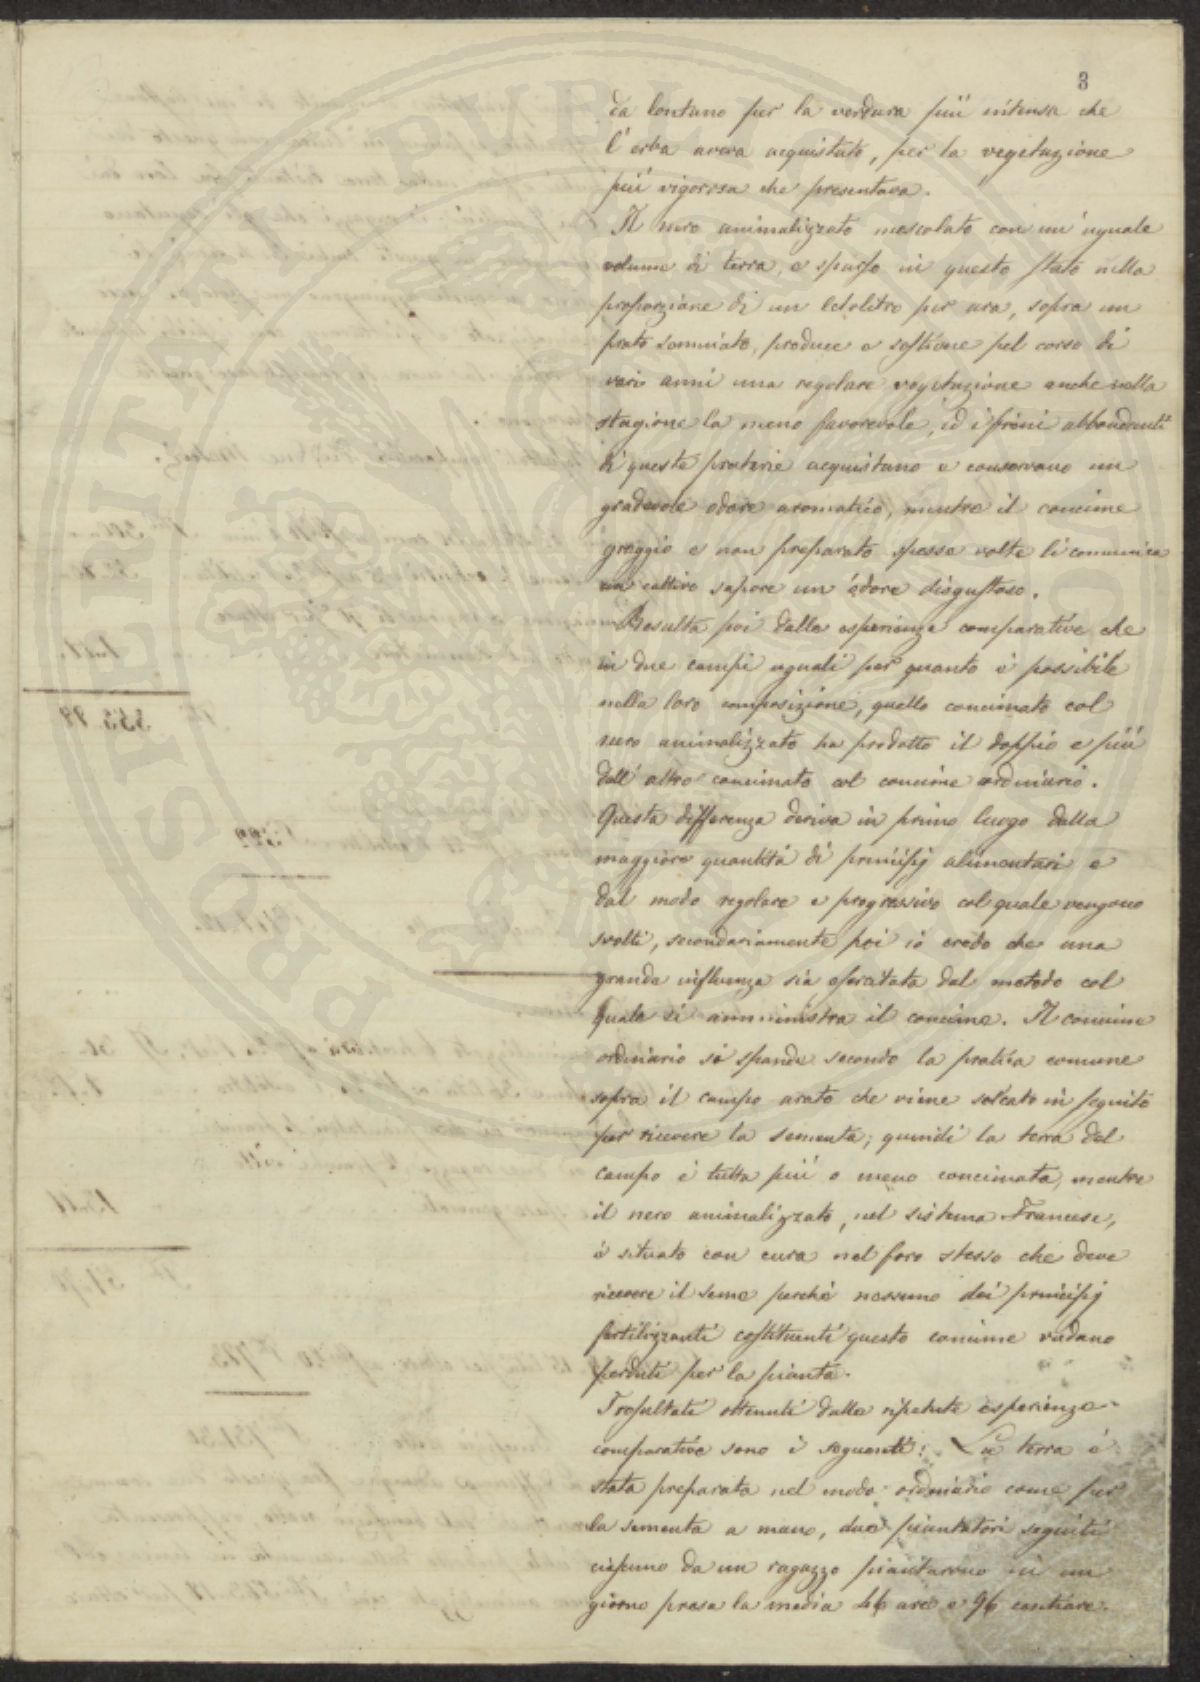 3
da lontano per la verdura piú intensa che
l'erba aveva acquistato, per la vegetazione
piú vigorosa che presentava.
Il nero animalizzato mescolato con un'uguale
volume di terra, e sparso in questo stato nella
proporzione di un ectolitro per ara, sopra un
prato seminato, produce e sostiene pel corso di
vari anni una regolare vegetazione anche nella
stagione la meno favorevole, ed i fieni abbondanti
di queste praterie acquistano e conservano un
gradevole odore aromatico, mentre il concime
greggio e non preparato spesse volte li comunica
un cattivo sapore un odore disgustoso.
Resulta poi dalle esperienze comparative che
in due campi uguali per quanto è possibile
nella loro composizione, quello concimato col
nero animalizzato ha prodotto il doppio e piú
dell'altro concimato col concime ordinario.
Questa differenza deriva in primo luogo dalla
maggiore quantità di principj alimentari e
dal modo regolare e progressivo col quale vengono
svolti, secondariamente poi io credo che una
grande influenza sia esercitata dal metodo col
quale si amministra il concime. Il concime
ordinario si spande secondo la pratica comune
sopra il campo arato che viene solcato in seguito
per ricevere la sementa; quindi la terra del
campo è tutta piú o meno concimata, mentre
il nero animalizzato, nel sistema Francese,
è situato con cura nel foro stesso che deve
ricevere il seme perchè nessuno dei principj
fertilizzanti costituenti questo concime vadano
perduti per la pianta.
I resultati ottenuti dalle ripetute esperienze
comparative sono i seguenti: La terra è
stata preparata nel modo ordinario come per
la sementa a mano, due piantatori seguiti
ciascuno da un ragazzo piantarono in un
giorno presa la media 46 are e 96 centiare.
PUBLIC
POSITAT